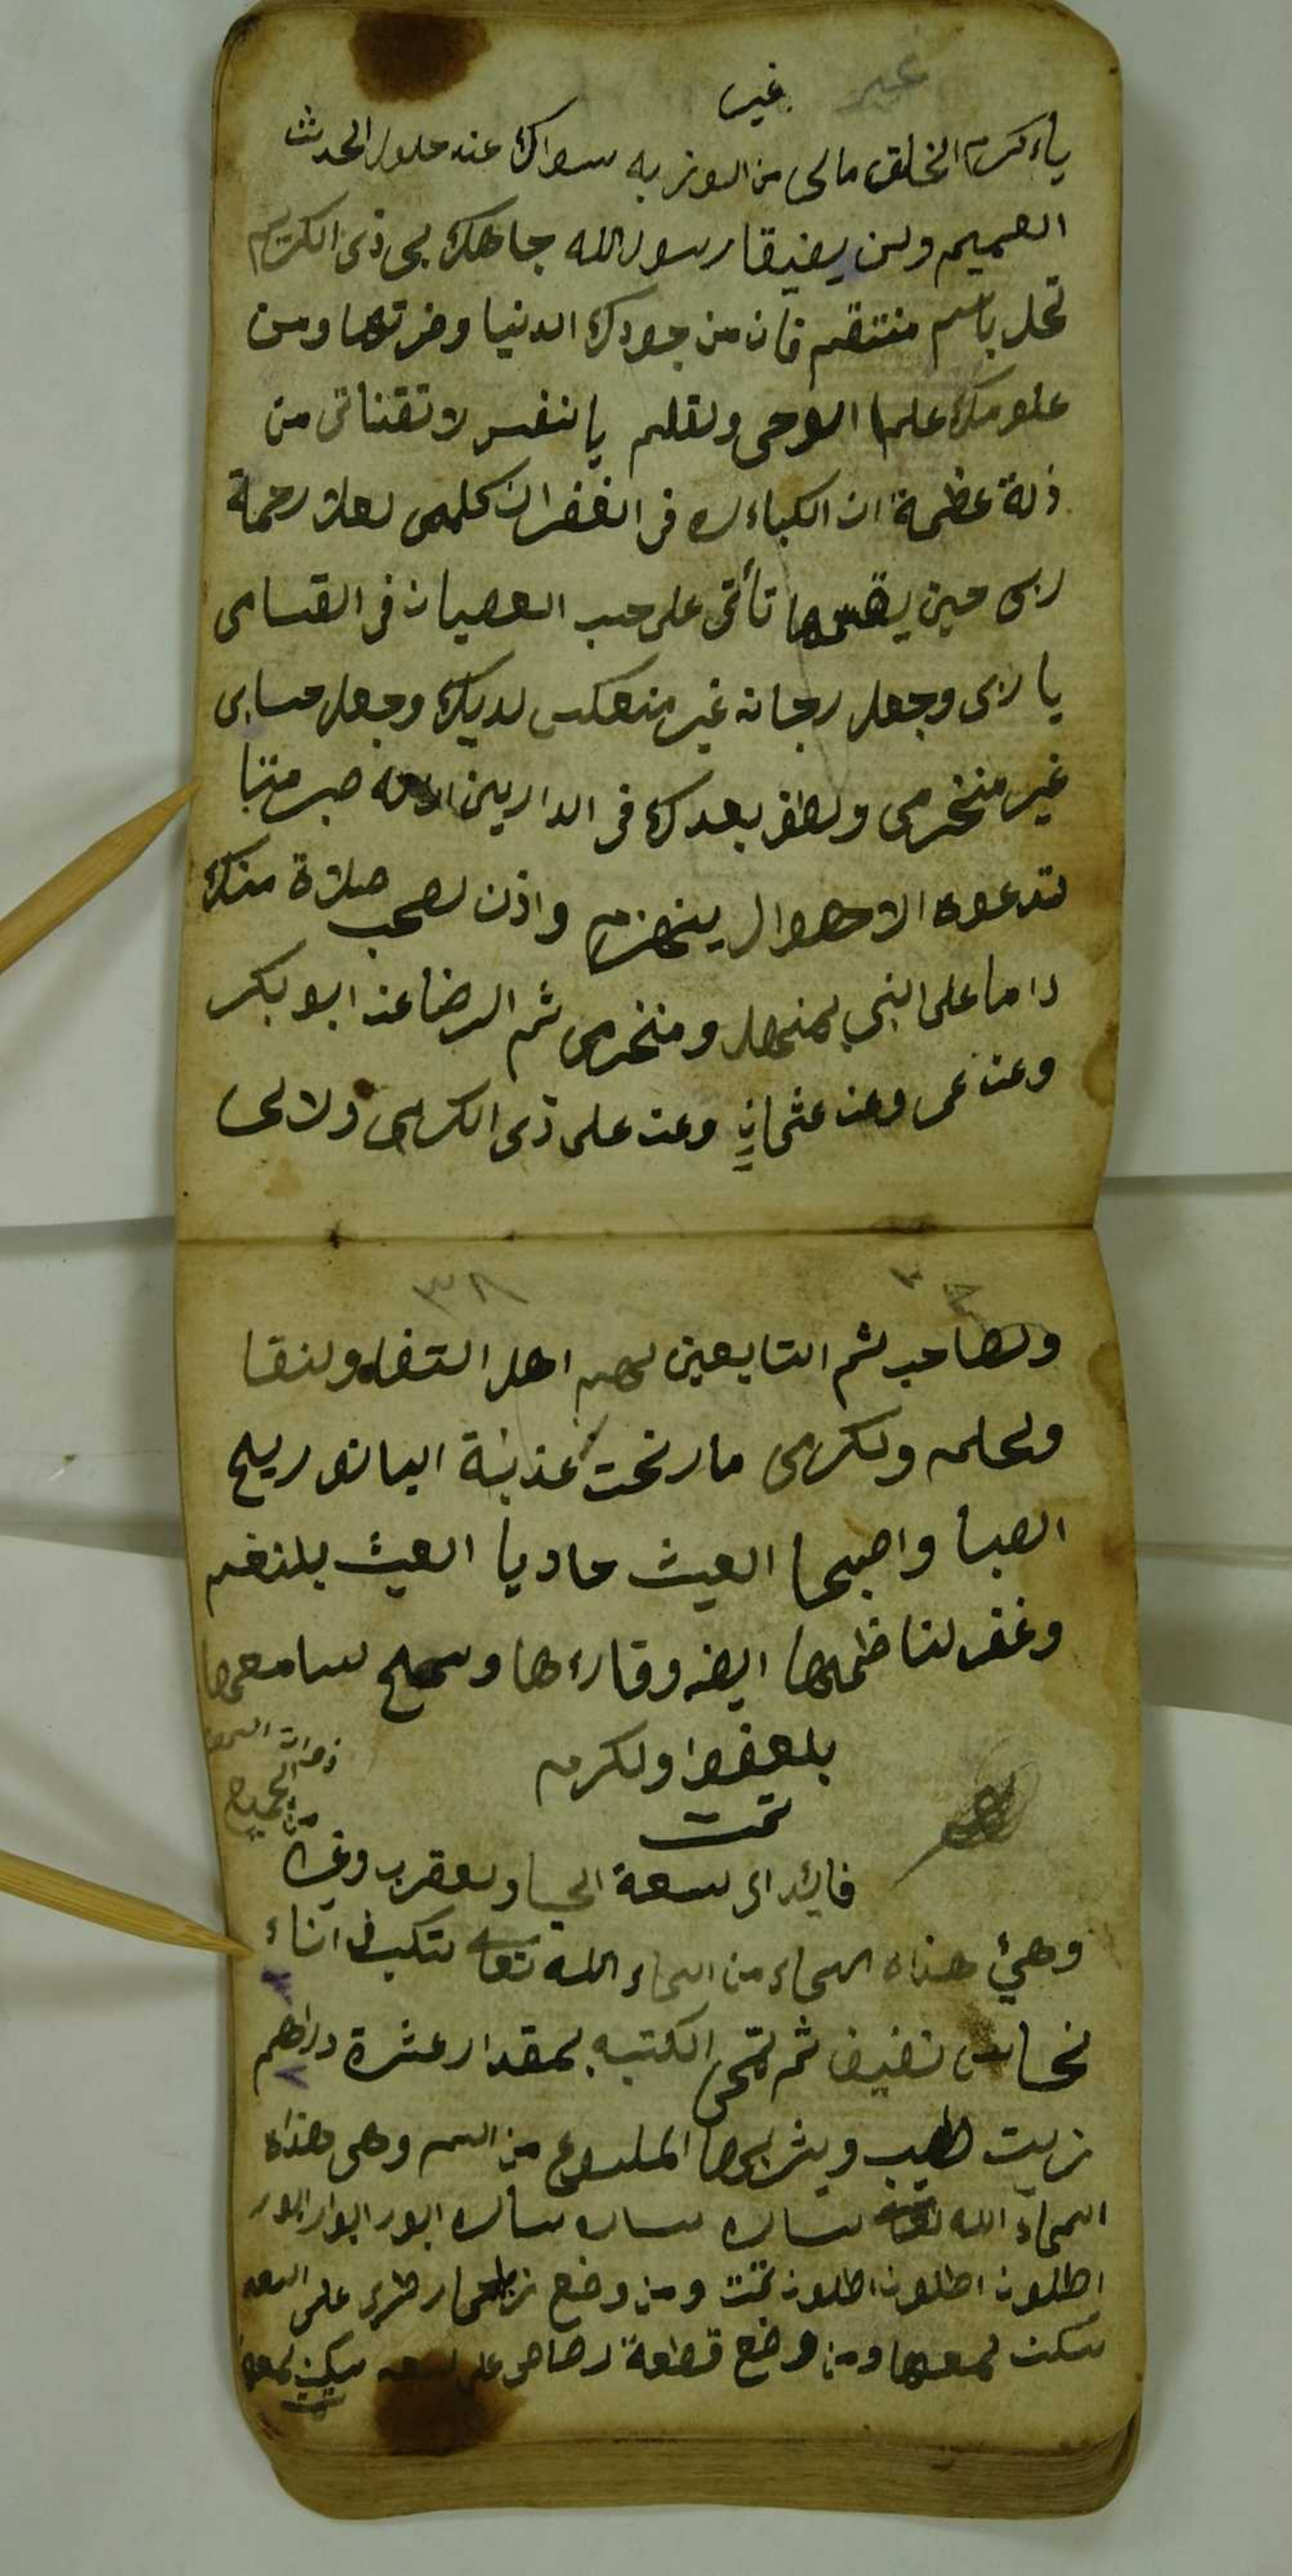 غير
غيب
ياءكرم الخلق مالى من الوذ به سواك عند حلول الحدث
العميم ولن يضيقا رسول الله جاهك بى ذى الكريم
تحل باسم منتقم فان من جودك الدنيا وضرتها ومن
علومك علما الوحى ولقلم يا نفس لا تقناتى من
ذلة عظمة ان الكباءره فى الغفران كلممى لعلا رحمة
ربى حين يقسمها تأتى على حسب العصيان فى القسامى
يا ربى وجعل رجانه غير منعكس لديك وجعل حسابى
غير منخرمى ولطف بعدك فى الدارين ان له صبر متبا
تدعوه الاحهوال ينهزم واذن لصحب صلاة منك
داما على النبي بمنهل ومنخرمى ثم الرضا عن ابو بكر
وعن عمر وعن عثمان وعن على ذى الكرمى ولالى
٣٨
ولصاحب ثم التابعين لهم اهل التقاه ولنقا
ولحلم ولكرمى ما رنحت عذبة البانه ريح
الصبا واصبحا العيث حاديا العيث بلنغم
وغفر لناظمها ايضه وقارءها وسمح سامعها
بلعفوا ولكرم
تمت
فايدا لى لسعة الحيا ولعقرب وغيره
وهيئ هذاه اسماء من اسماء الله تعا تكتب فى اناء
نحاس نضيف ثم تمحى الكتبه بمقدار عشرة دراهم
زيت طيب ويشربها الملسوع من السم وهى هذاه
اسماء الله تعا ساره ساره ساره ابور ابوار ابور
اطلون اطلون اطلون تمت ومن وضع على السعه
سكنت لمعها ومن وضع قطعة رصاص على لسعه سكن